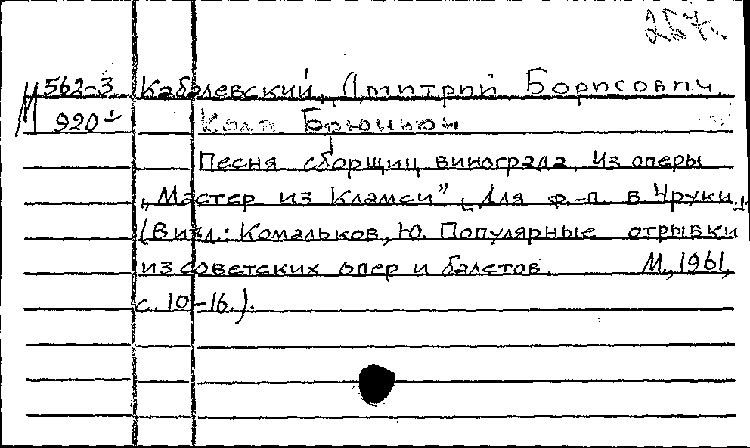 267.
М 562-3 Кабалевский, Дмитрий Борисович.
920 Кола Брюньон
Песня сборщиц винограда. Из оперы
„Мастер из Кламси" [Для ф.-п. в 4 руки.]
(В изд.: Комальков, Ю. Популярные отрывки
из советских опер и балетов. М., 1961,
с. 10-16.).